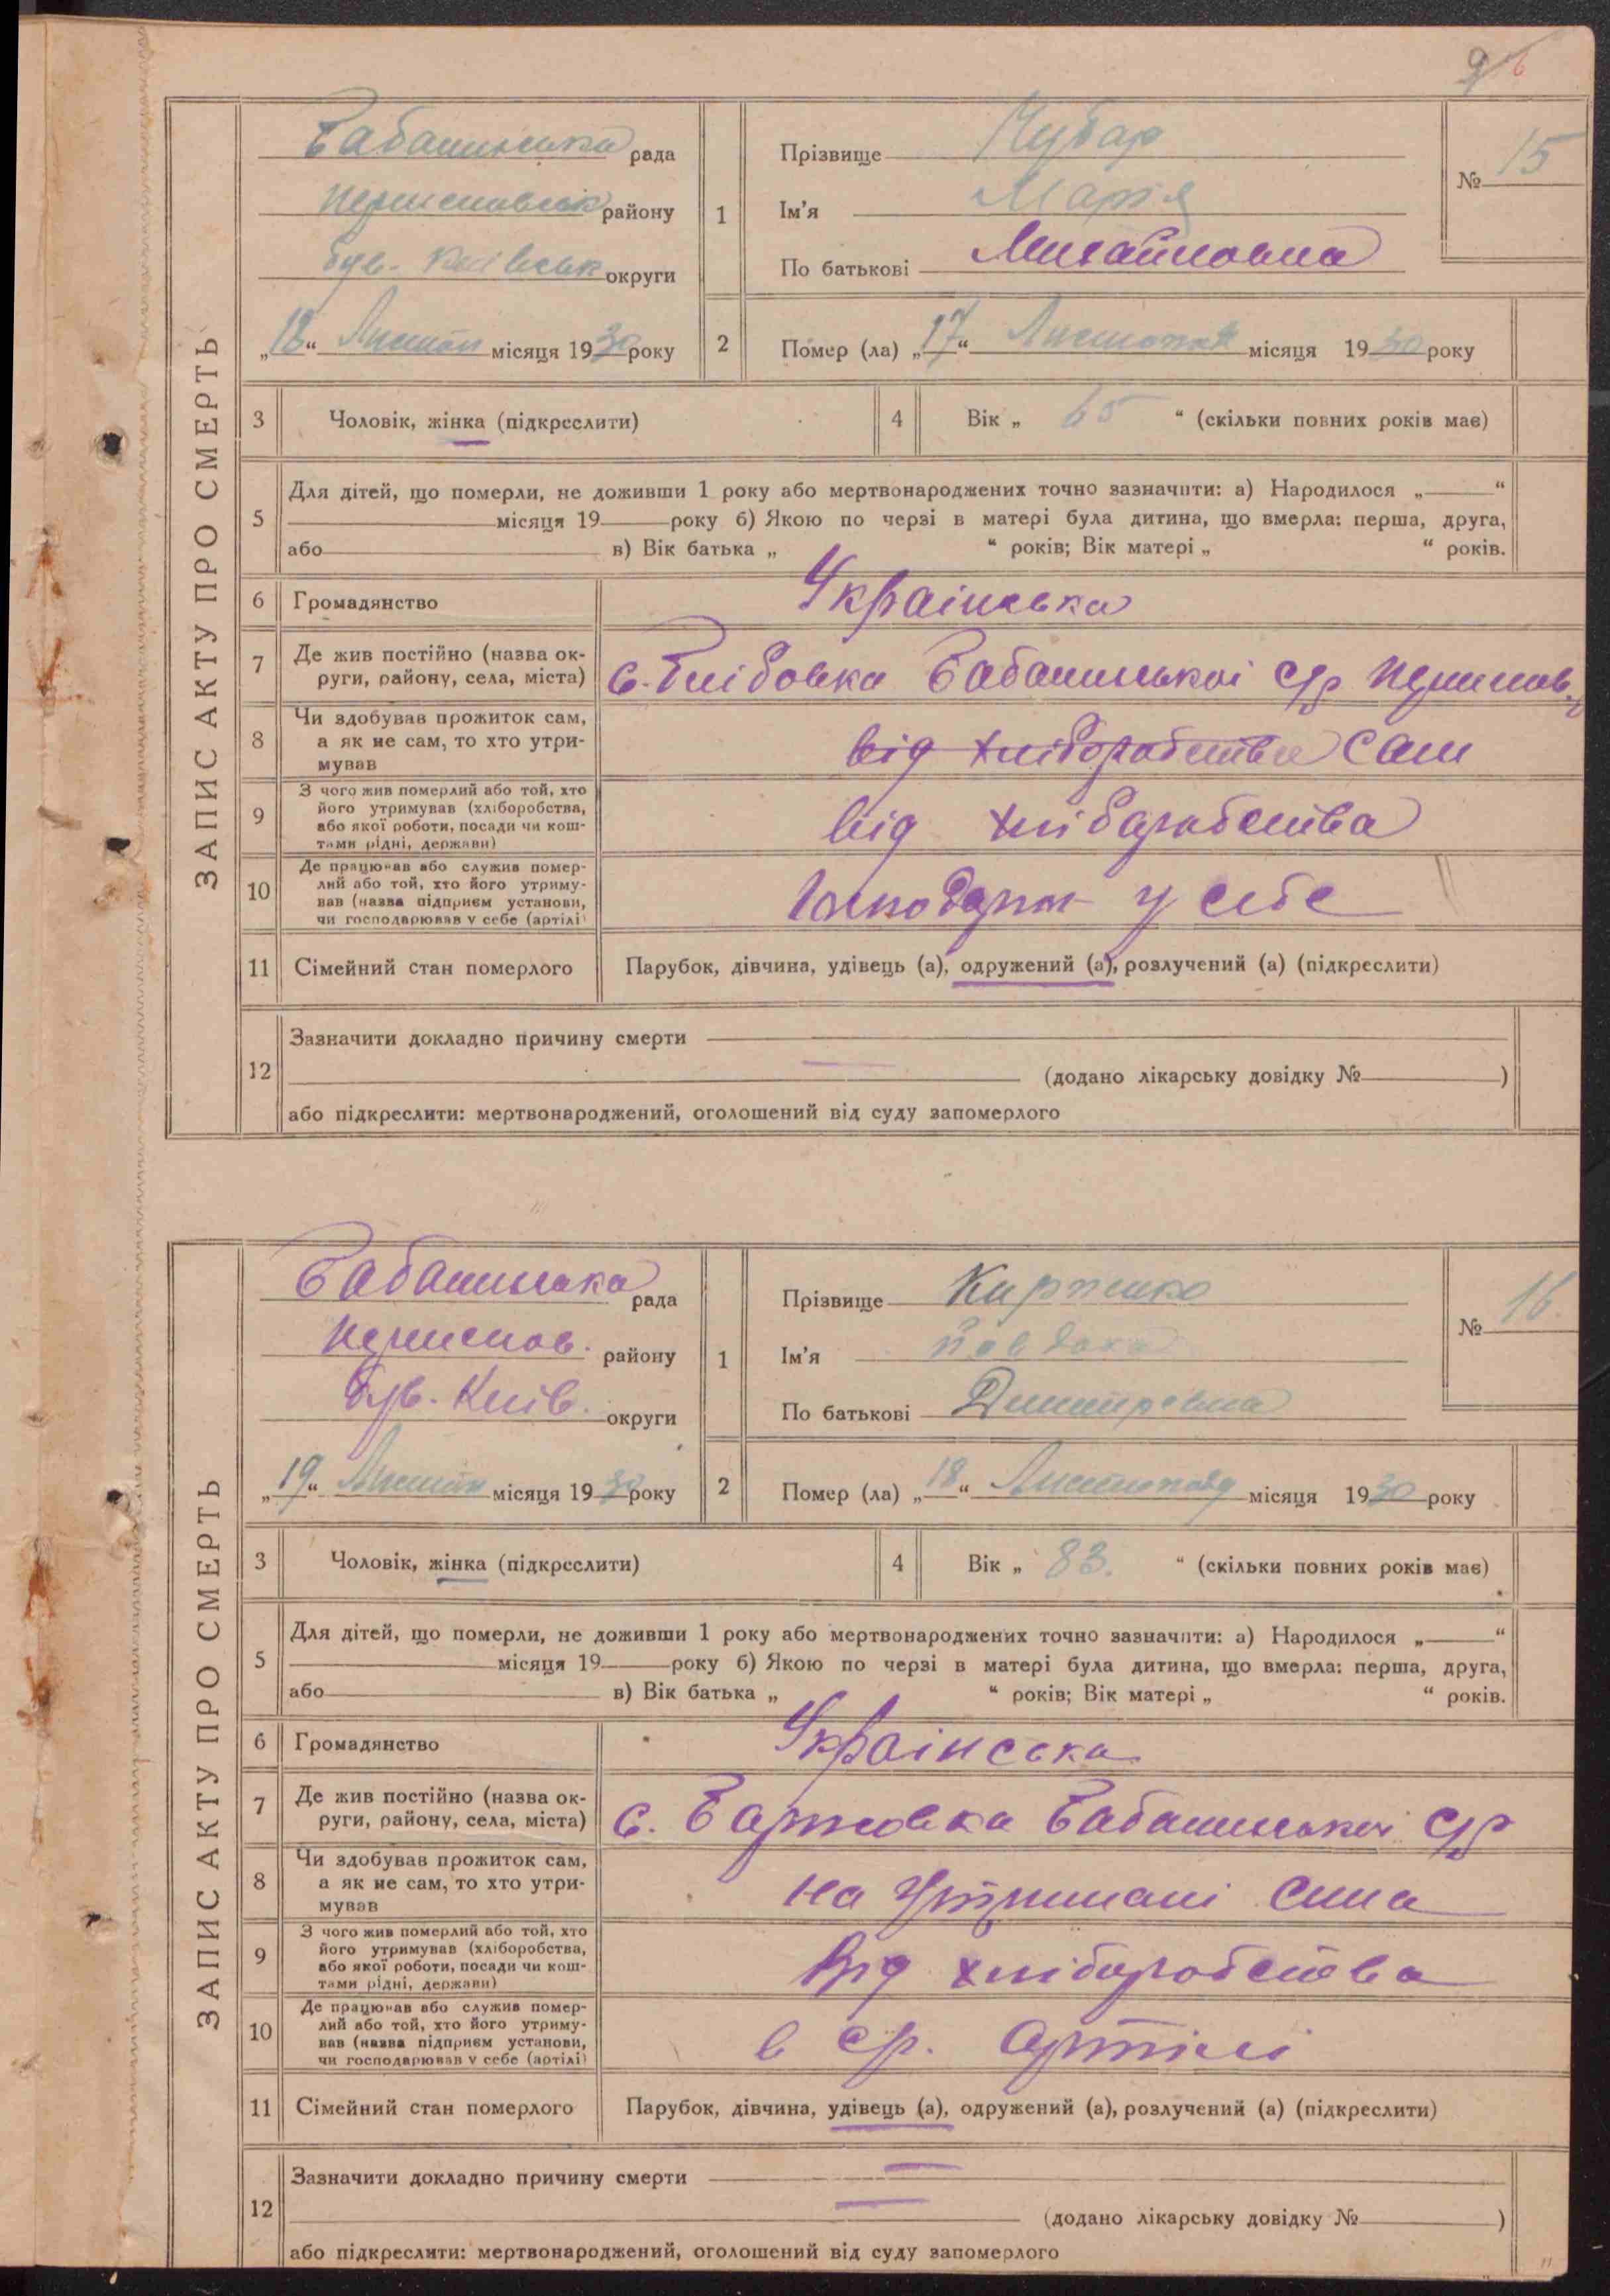 ЗАПИС АКТУ ПРО СМЕРТЬ
Бабашинська рада
району
був. Київськ округи
„18“ Листоп місяця 1930 року
1
Прізвище Чубар
Ім'я Марія
По батькові Михайловна
№ 15
2
Помер (ла) „17“ Листопада місяця 1930 року
3
Чоловік, жінка (підкреслити)
4
Вік „ 65 “ (скільки повних років має)
5
Для дітей, що померли, не доживши 1 року або мертвонароджених точно зазначити: а) Народилося „ “
місяця 19 року б) Якою по черзі в матері була дитина, що вмерла: перша, друга,
або в) Вік батька „ “ років; Вік матері „ “ років.
6
Громадянство
Українська
7
Де жив постійно (назва ок-
руги, району, села, міста)
с. Бабашинської с/р
8
Чи здобував прожиток сам,
а як не сам, то хто утри-
мував
від хліборобства сам
9
З чого жив померлий або той, хто
його утримував (хліборобства,
або якої роботи, посади чи кош-
тами рідні, держави)
від хліборобства
10
Де працював або служив помер-
лий або той, хто його утриму-
вав (назва підприєм установи,
чи господарював у себе (артілі)
у себе
11
Сімейний стан померлого
Парубок, дівчина, удівець (а), одружений (а), розлучений (а) (підкреслити)
12
Зазначити докладно причину смерти
(додано лікарську довідку № )
або підкреслити: мертвонароджений, оголошений від суду запомерлого
ЗАПИС АКТУ ПРО СМЕРТЬ
Бабашинська рада
району
був. Київ. округи
„19“ Листоп місяця 1930 року
1
Прізвище
Ім'я Явдоха
По батькові Дмитревна
№ 16.
2
Помер (ла) „18“ Листопада місяця 1930 року
3
Чоловік, жінка (підкреслити)
4
Вік „ 83. “ (скільки повних років має)
5
Для дітей, що померли, не доживши 1 року або мертвонароджених точно зазначити: а) Народилося „ “
місяця 19 року б) Якою по черзі в матері була дитина, що вмерла: перша, друга,
або в) Вік батька „ “ років; Вік матері „ “ років.
6
Громадянство
Українська
7
Де жив постійно (назва ок-
руги, району, села, міста)
с. Бабашинської с/р
8
Чи здобував прожиток сам,
а як не сам, то хто утри-
мував
на утримані сина
9
З чого жив померлий або той, хто
його утримував (хліборобства,
або якої роботи, посади чи кош-
тами рідні, держави)
Від хліборобства
10
Де працював або служив помер-
лий або той, хто його утриму-
вав (назва підприєм установи,
чи господарював у себе (артілі)
в ср. артілі
11
Сімейний стан померлого
Парубок, дівчина, удівець (а), одружений (а), розлучений (а) (підкреслити)
12
Зазначити докладно причину смерти
(додано лікарську довідку № )
або підкреслити: мертвонароджений, оголошений від суду запомерлого